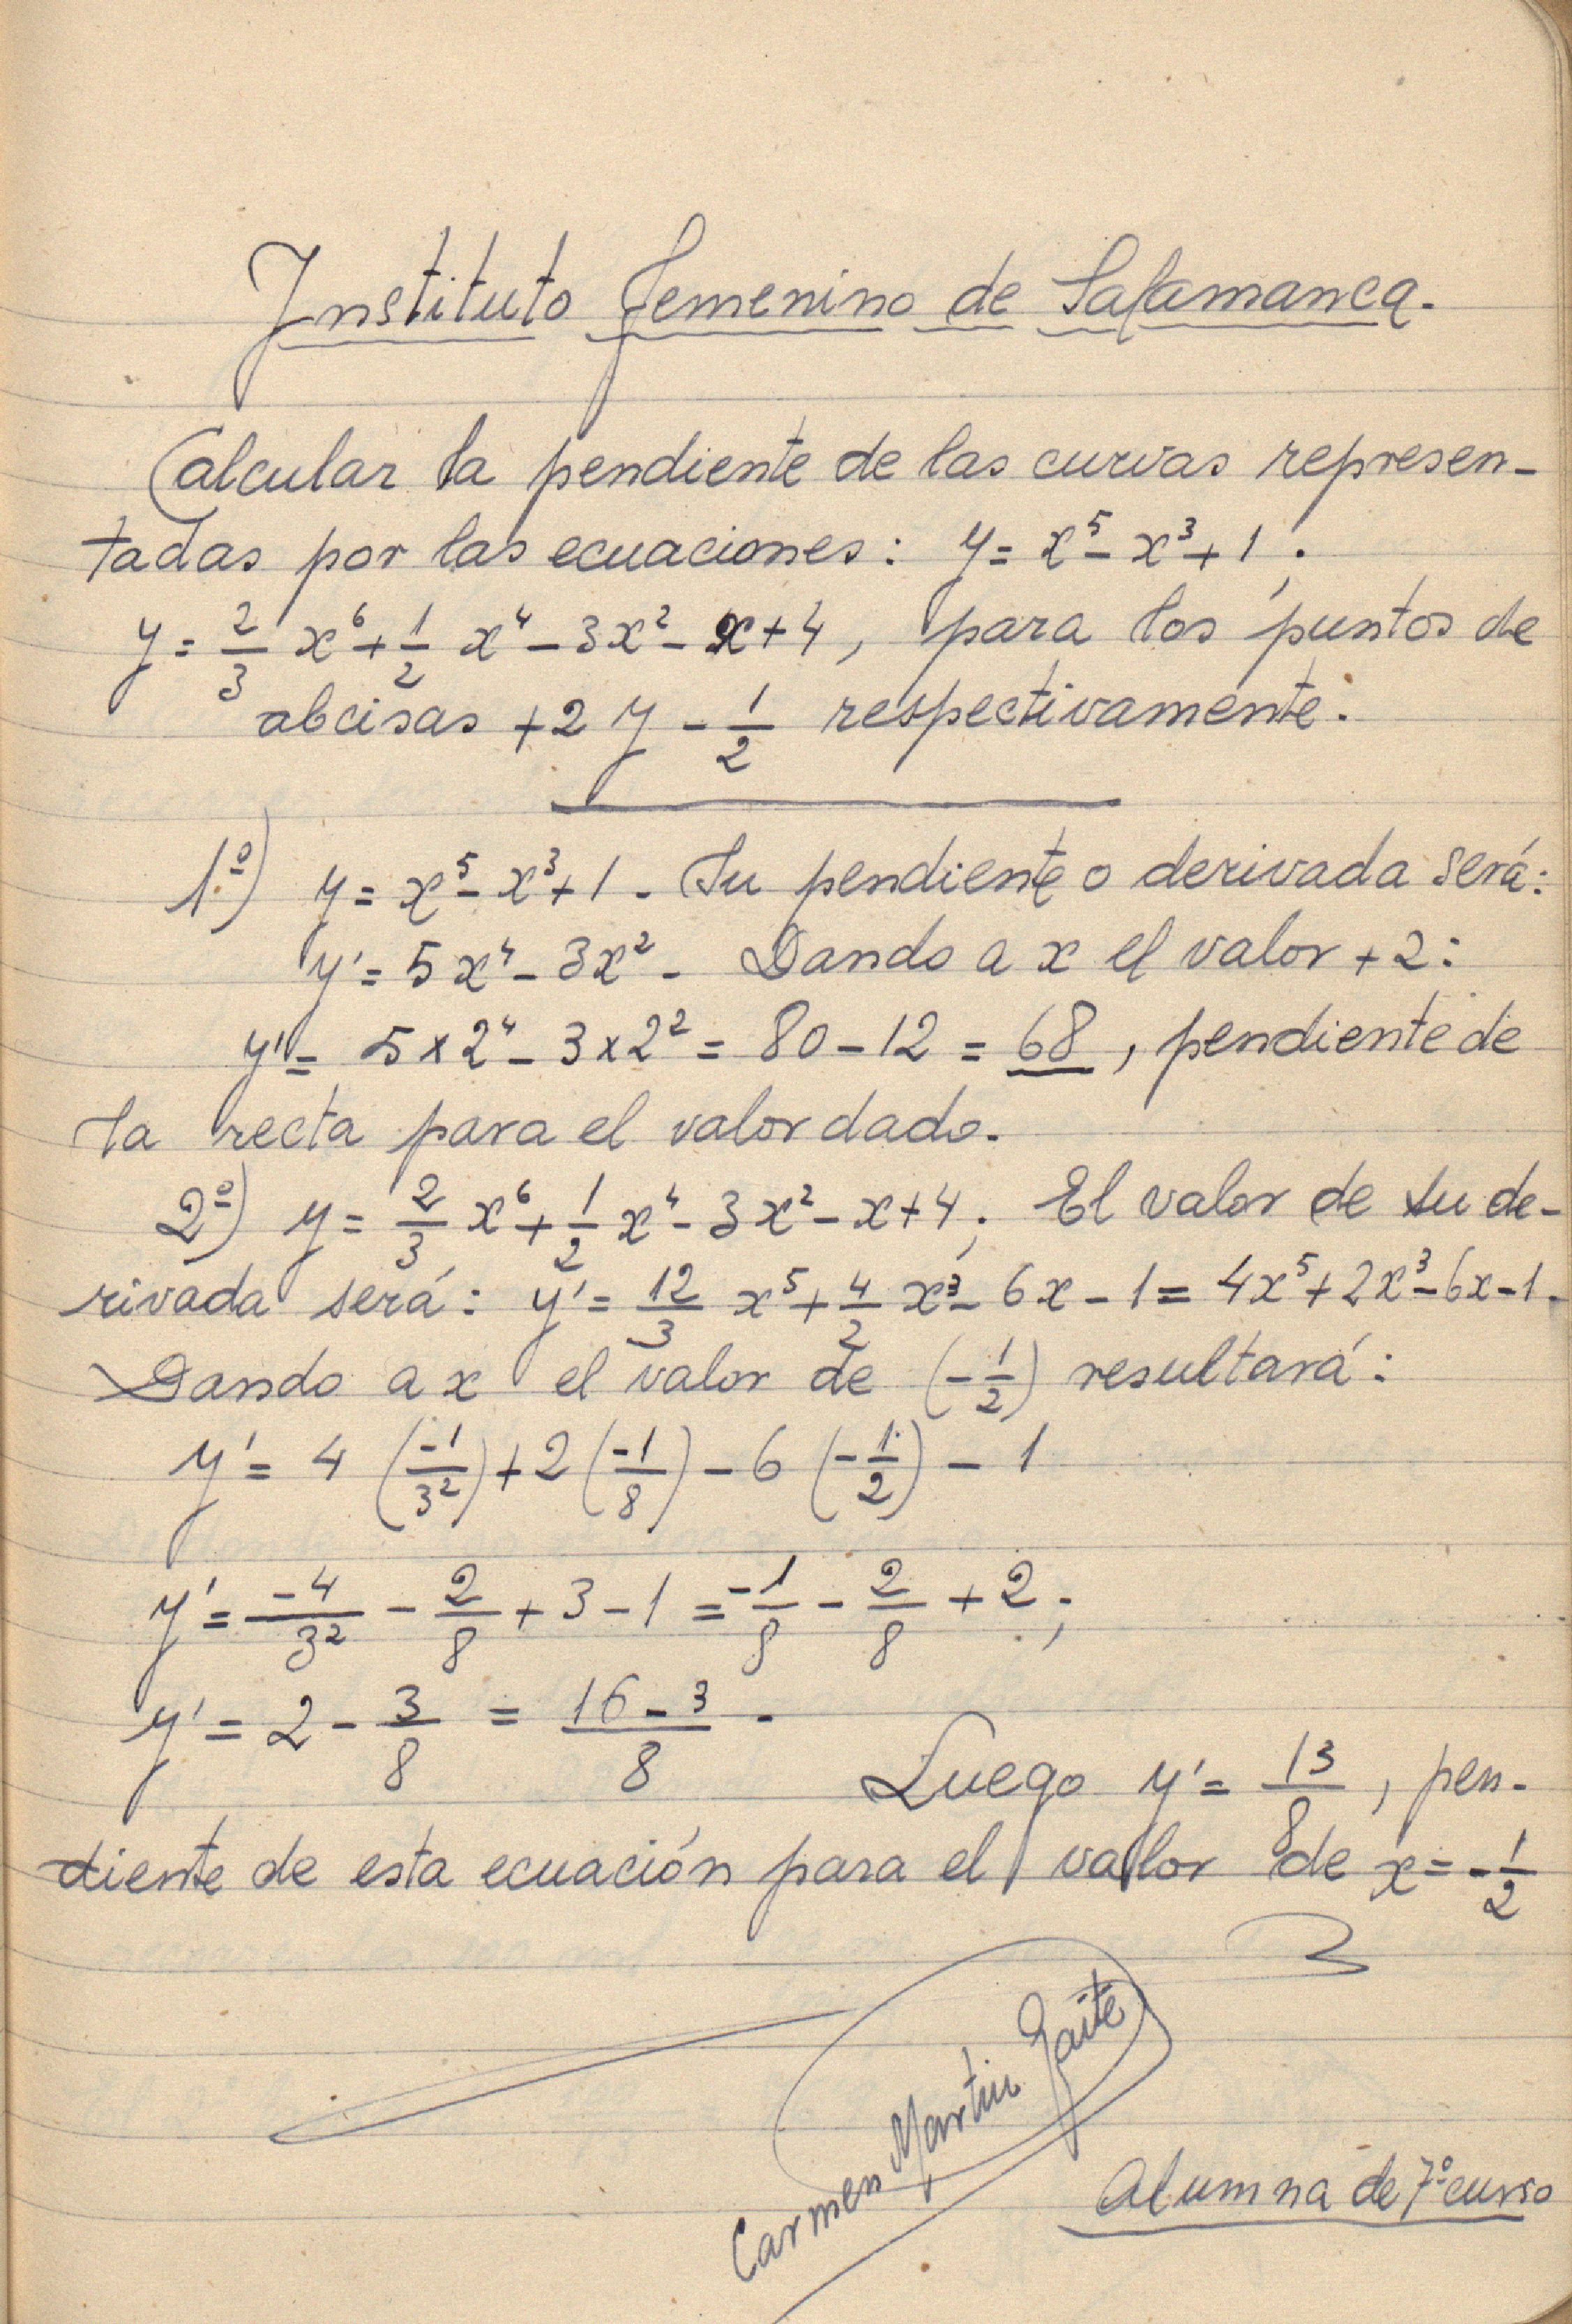 Instituto Femenino de Salamanca.
Calcular la pendiente de las curvas represen-
tadas por las ecuaciones: y = x⁵ - x³ + 1;
y = 2/3 x⁶ + 1/2 x⁴ - 3x² - x + 4, para los puntos de
abcisas +2 y - 1/2 respectivamente.
1º) y = x⁵ - x³ + 1 - Su pendiente o derivada será:
y' = 5x⁴ - 3x² - Dando a x el valor +2:
y' = 5 x 2⁴ - 3 x 2² = 80 - 12 = 68, pendiente de
la recta para el valor dado.
2º) y = 2/3 x⁶ + 1/2 x⁴ - 3x² - x + 4; El valor de su de-
rivada será: y' = 12/3 x⁵ + 4/2 x³ - 6x - 1 = 4x⁵ + 2x³ - 6x - 1 -
Dando a x el valor de (- 1/2) resultará:
y' = 4 (-1/32) + 2 (-1/8) - 6 (- 1/2) - 1
y' = -4/32 - 2/8 + 3 - 1 = -1/8 - 2/8 + 2;
y' = 2 - 3/8 = 16 - 3/8 -
Luego y' = 13/8, pen-
diente de esta ecuación para el valor de x = - 1/2
Carmen Martín Gaite
Alumna de 7º curso